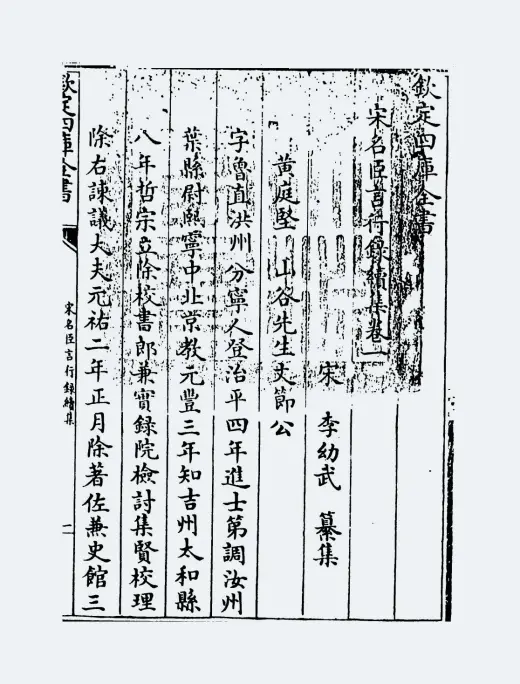 欽定四庫全書
宋名臣言行錄續集卷一
宋 李幼武 纂集
黃庭堅 山谷先生文節公
字魯直洪州分寧人登治平四年進士第調汝州
葉縣尉熙寧中北京教元豐三年知吉州太和縣
八年哲宗立除校書郎兼實録院檢討集賢校理
除右諫議大夫元祐二年正月除著佐兼史館三
欽定四庫全書
宋名臣言行錄續集